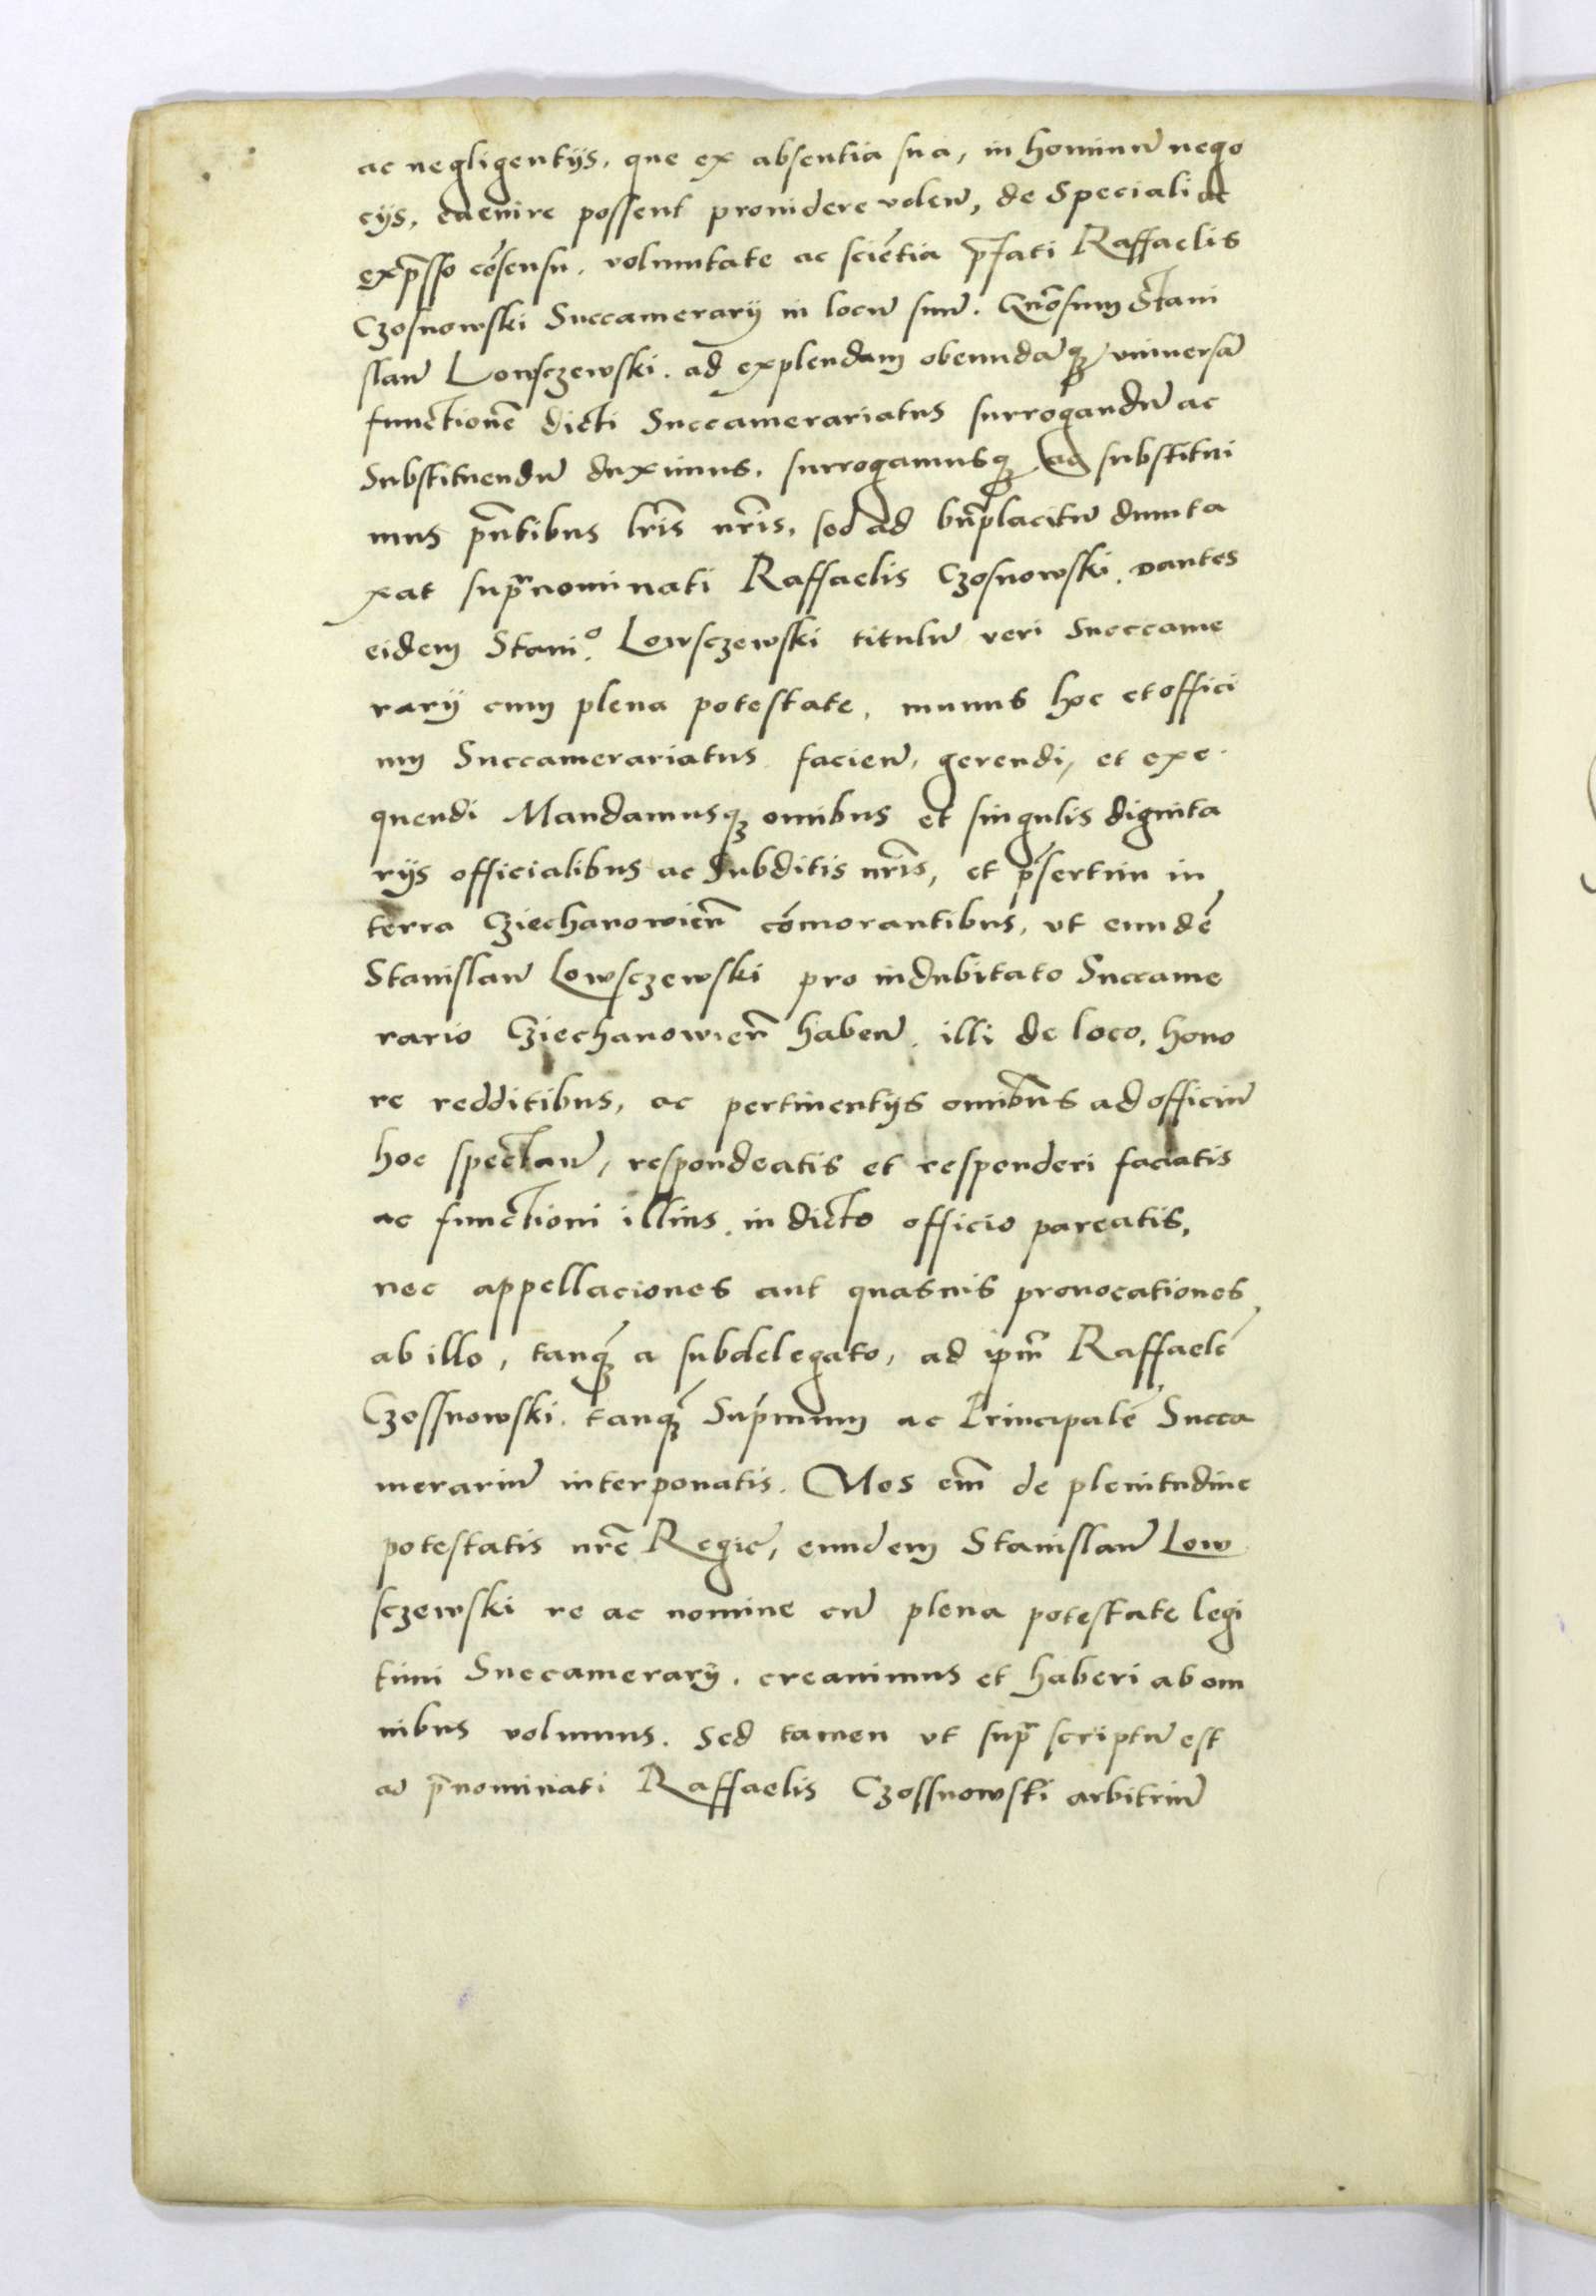 ac negligentijs, que ex absentia sua, in hominū nego
cijs, euenire possent prouidere volen̄, de Speciali ac
exp̄sso cōsensu, voluntate ac sciētia p̄fati Raffaelis
Czosnowski Succamerarij in locū suū. Gn̄osum Stani
slaū Lowsczewski. ad explendam obeundāqȝ vniuersā
functionē dicti Succamerariatus surrogandū ac
Substituendū duximus, surrogamusqȝ ac substitui
mus p̄ntibus lr̄is nr̄is, sed ad bn̄placitū dumta
xat supranominati Raffaelis Czosnowski. Dantes
eidem Staniᵒ. Lowsczewski titulū veri Succame
rarij cum plena potestate, munus hoc et offici
um Succamerariatus facien̄, gerendi, et exe
quendi Mandamusqȝ omnibus et singulis dignita
rijs officialibus ac Subditis nr̄is, et p̄sertim in
terra Cziechanowien̄ cōmorantibus, vt eundē
Stanislaū Lowsczewski pro indubitato Succame
rario Cziechanowien̄ haben̄. illi de loco, hono
re redditibus, ac pertinentijs omnibus ad officiū
hoc spectan̄, respondeatis et responderi faciatis
ac functioni illius in dicto officio pareatis,
nec appellaciones aut quasuis prouocationes
ab illo, tanqȝ̄ a subdelegato, ad ipm̄ Raffaelē
Czossnowski. tanqȝ̄ Sup̄mum ac Principalē Succa
merariū interponatis. Nos em̄ de plenitudine
potestatis nr̄e Regie, eundem Stanislaū Low
sczewski re ac nomine cū plena potestate legi
timi Succamerarij. creauimus et haberi ab om
nibus volumus. Sed tamen vt supra scriptū est
ad p̄nominati Raffaelis Czossnowski arbitriū